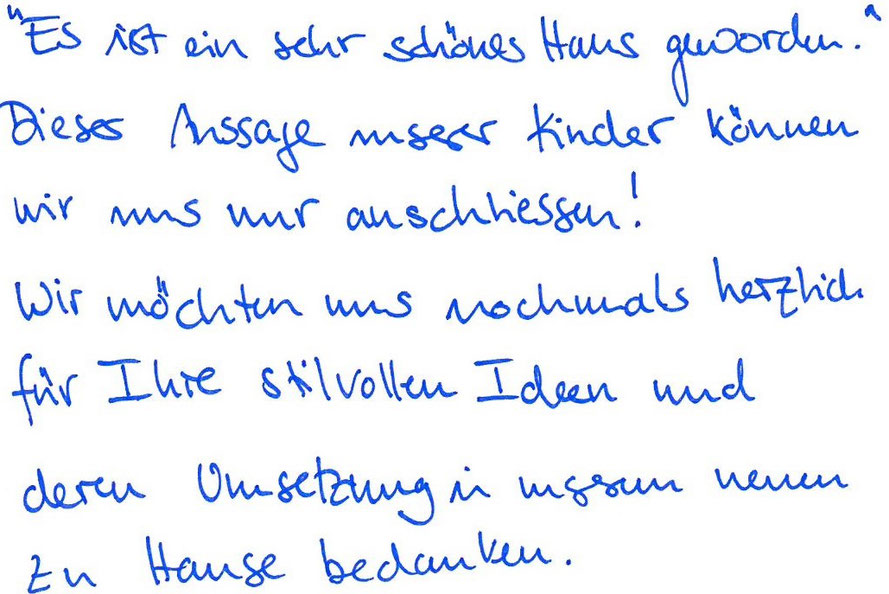 "Es ist ein sehr schönes Haus geworden."
Dieser Aussage unserer Kinder können
wir uns nur anschliessen!
Wir möchten uns nochmals herzlich
für Ihre stilvollen Ideen und
deren Umsetzung in unserem neuen
zu Hause bedanken.